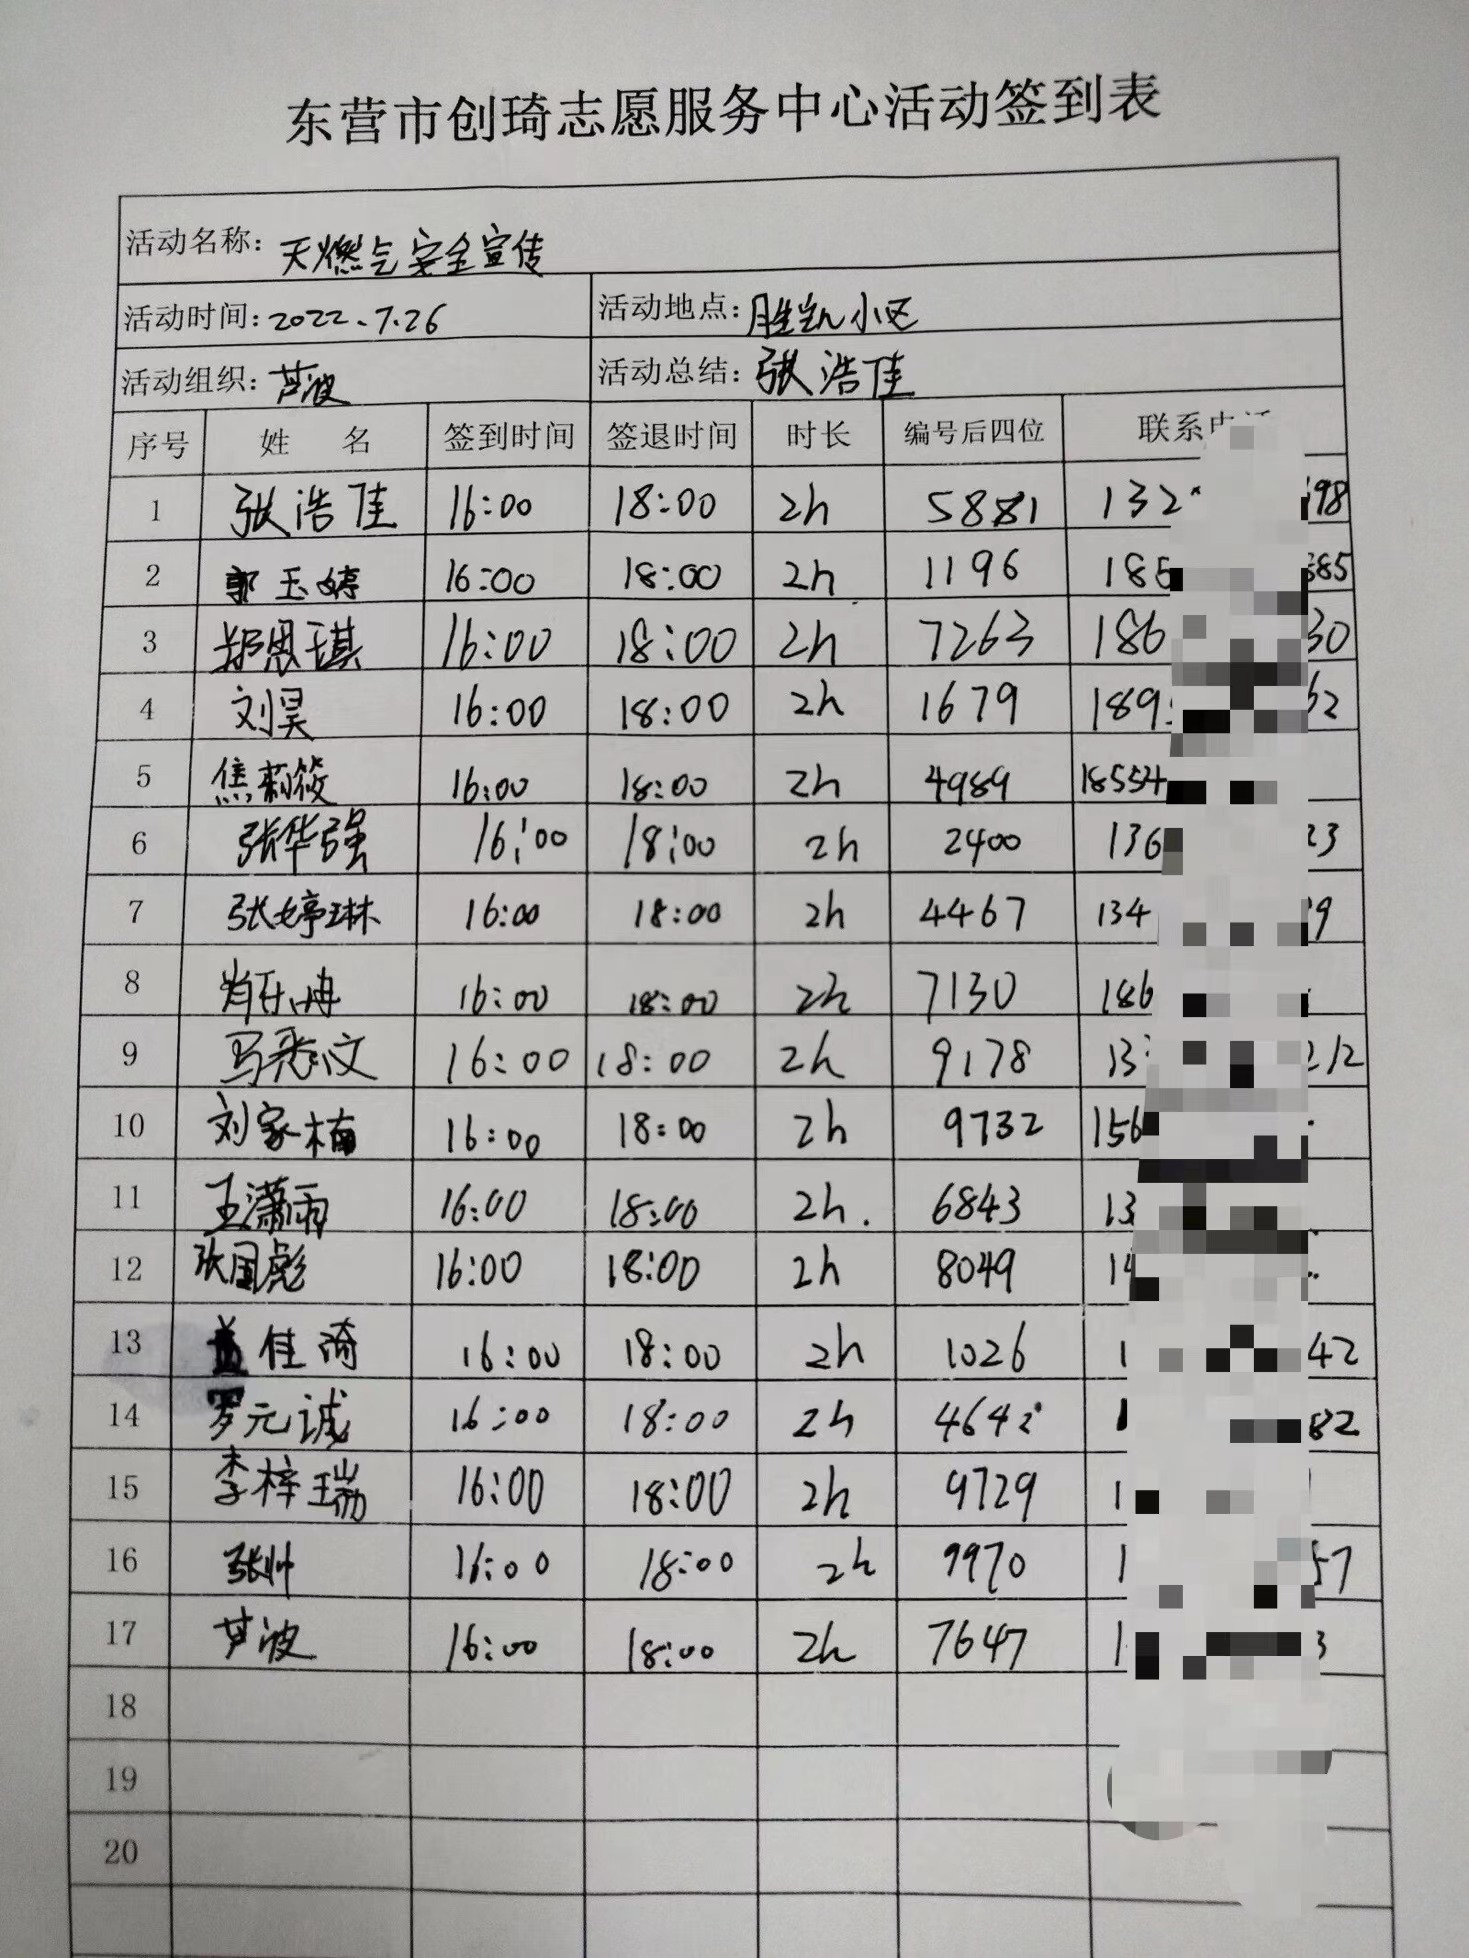 东营市创琦志愿服务中心活动签到表
活动名称: 天燃气安全宣传
活动时间: 2022.7.26 活动地点: 胜凯小区
活动组织: 芦波 活动总结: 张浩佳
序号 姓 名 签到时间 签退时间 时长 编号后四位 联系电话
1 张浩佳 16:00 18:00 2h 5881 132 98
2 郭玉婷 16:00 18:00 2h 1196 185 885
3 郑思琪 16:00 18:00 2h 7263 186 30
4 刘昊 16:00 18:00 2h 1679 189 62
5 焦莉筱 16:00 18:00 2h 4989 18554
6 张华强 16:00 18:00 2h 2400 136 23
7 张婷琳 16:00 18:00 2h 4467 134 9
8 16:00 18:00 2h 7130 186
9 马 文 16:00 18:00 2h 9178 13 212
10 刘家楠 16:00 18:00 2h 9732 156
11 王潇雨 16:00 18:00 2h. 6843 13
12 张国彪 16:00 18:00 2h 8049 14
13 佳琦 16:00 18:00 2h 1026 1 42
14 罗元诚 16:00 18:00 2h 4642 1 82
15 李梓瑞 16:00 18:00 2h 9729 1
16 张帅 16:00 18:00 2h 9970 1 57
17 芦波 16:00 18:00 2h 7647 1 3
18
19
20